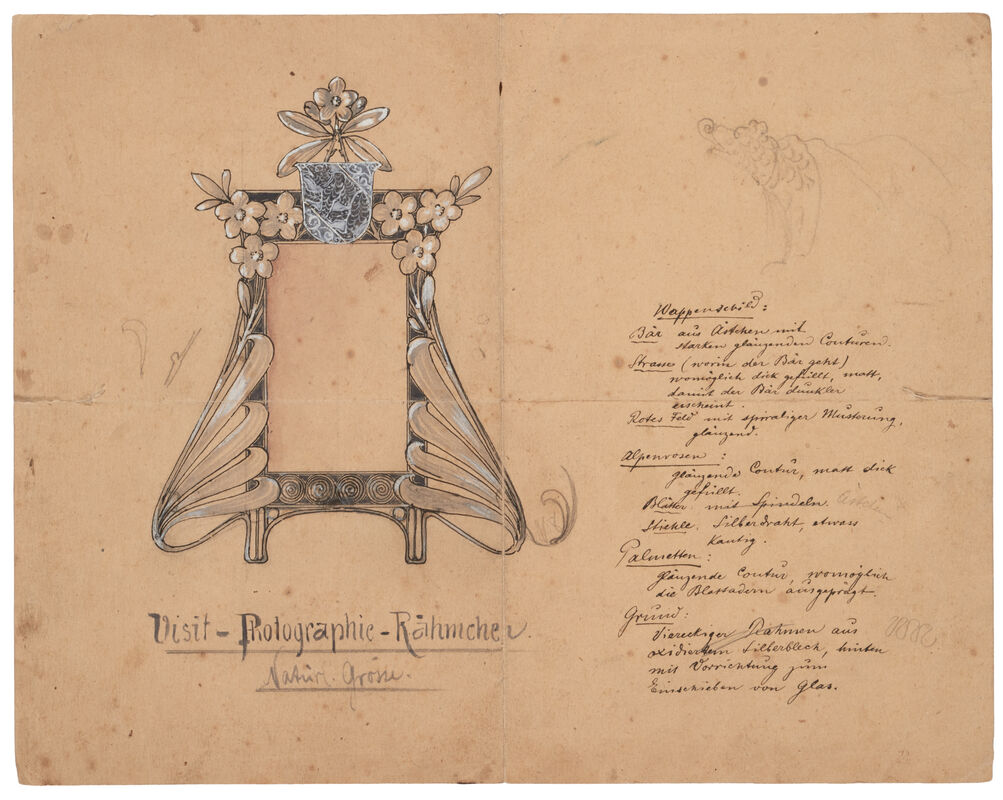 Visit - Photographie - Rähmchen.
Natürl. Grösse.
Wappenschild:
Bär aus Ästchen mit
starken glänzenden Conturen.
Strasse (worin der Bär geht)
womöglich dick gefüllt, matt,
damit der Bär dunkler
erscheint.
Rotes Feld mit spiraliger Musterung,
glänzend.
Alpenrosen:
glänzende Contur, matt dick
gefüllt.
Blätter mit Spindeln. Ästchen
Stiehle. Silberdraht, etwas
kantig.
Palmetten:
Glänzende Contur, womöglich
die Blattadern ausgeprägt.
Grund:
Viereckiger Rahmen aus
oxidiertem Silberblech, hinten
mit Vorrichtung zum
Einschieben von Glas.